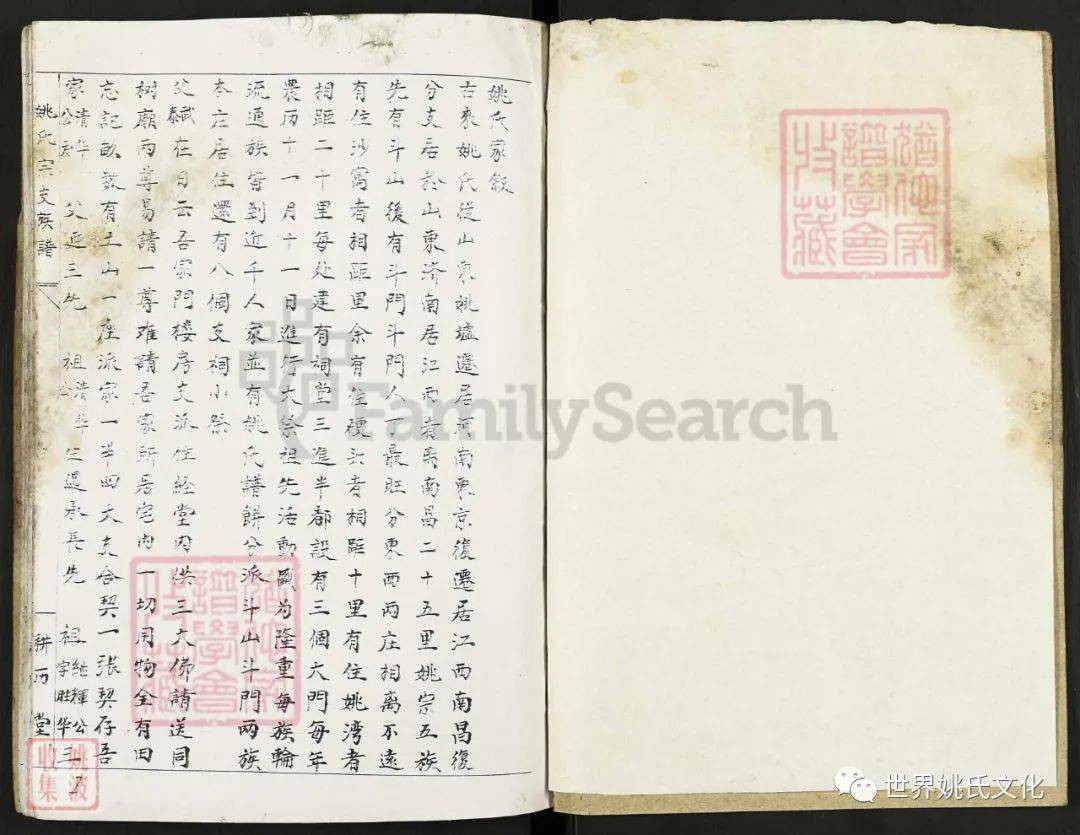 姚氏家叙
古来姚氏從山東姚墟遷居河南東京復遷居江西南昌復
分支居於山東济南居江西者离南昌二十五里姚宗五族
先有斗山後有斗門斗門人丁最旺分東西两庄相离不遠
有住沙窩者相距里余有住硬头者相距十里有住姚湾者
相距二十里每处建有祠堂三進半都設有三個大門每年
農历十一月十一日進行大祭祖先活動頗为隆重每族輪
流通族皆到近千人家並有姚氏譜餅分派斗山斗門两族
本庄居住還有八個支祠小祭
父斌在日云吾家門楼房支派住经堂内供三大佛請送同
树廟两尊易請一尊难請吾家所居宅内一切用物全有田
忘記畝数有土山一座派家一半四大支合契一張契存吾
家清华公云 父延三先 祖清华公 生還承長先 祖继輝公字胜华三
姚氏宗支族譜
耕历堂
猶他家譜學會收藏
猶他家譜學會收藏
姚波收集
FamilySearch
世界姚氏文化